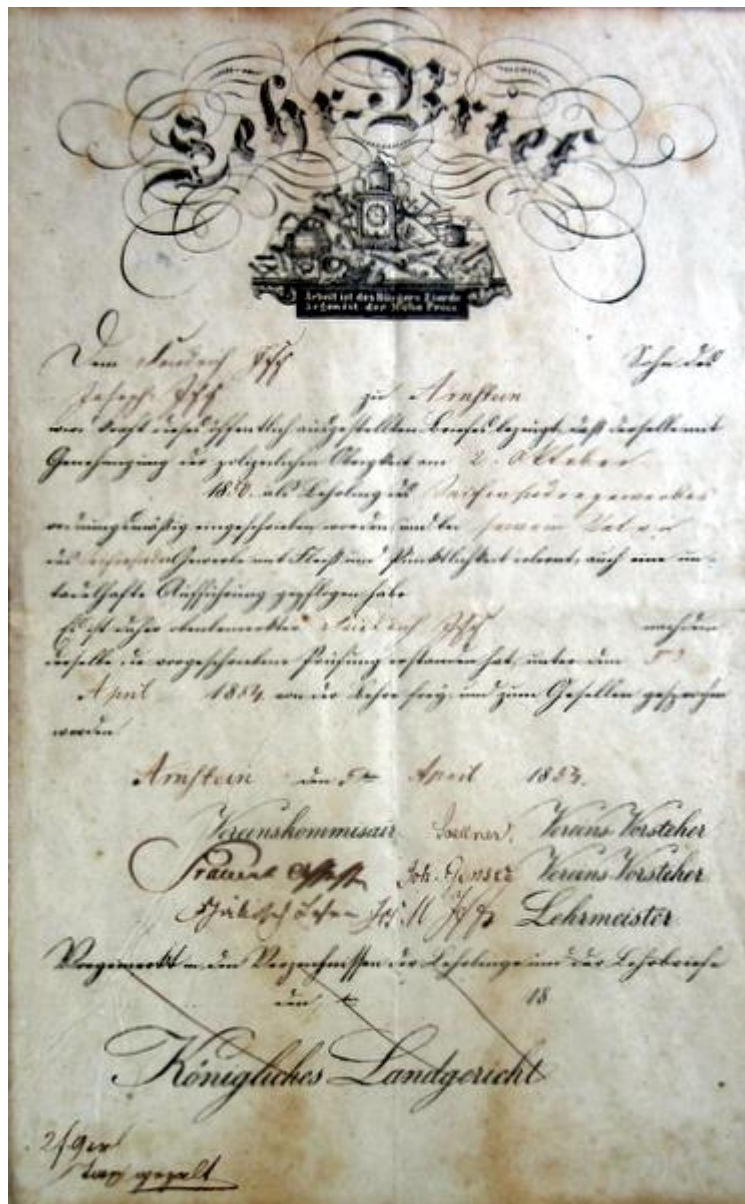 Lehr-Brief
Arbeit ist des Bürgers Zierde
Segen ist der Mühe Preis
Dem Friedrich Sohn des
Joseph zu Arnstein
wird kraft dieses öffentlich ausgestellten Briefes bezeugt, daß derselbe mit
Genehmigung der polizeilichen Obrigkeit am 2. Oktober
1850 als Lehrling des Seifensiedergewerbes
ordnungsmäßig eingeschrieben worden, und bei seinem Vater
das Gewerbe mit Fleiß und Pünktlichkeit erlernt, auch eine un-
tadelhafte Aufführung gepflogen habe
Es ist daher obenbemerkter Friedrich nachdem
derselbe die vorgeschriebene Prüfung erstanden hat, unter dem 5
April 1853 von der Lehre frey und zum Gesellen gesprochen
worden
Arnstein den 5 April 1853.
Vereinskommissair Vereins Vorsteher
Joh. Vereins Vorsteher
Jos. Lehrmeister
Vorgemerkt in den Verzeichnissen der Lehrlinge und der Lehrbriefe
den 18
Königliches Landgericht